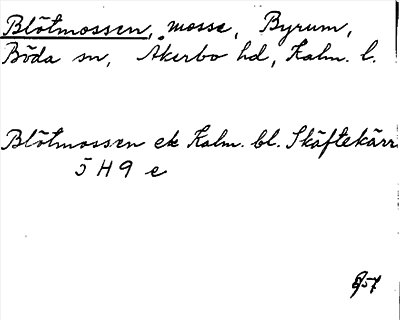 Blötmossen, mosse, Byrum,
Böda sn, Åkerbo hd, Kalm. l.
Blötmossen ek Kalm. bl. Skäftekärr
5 H 9 e